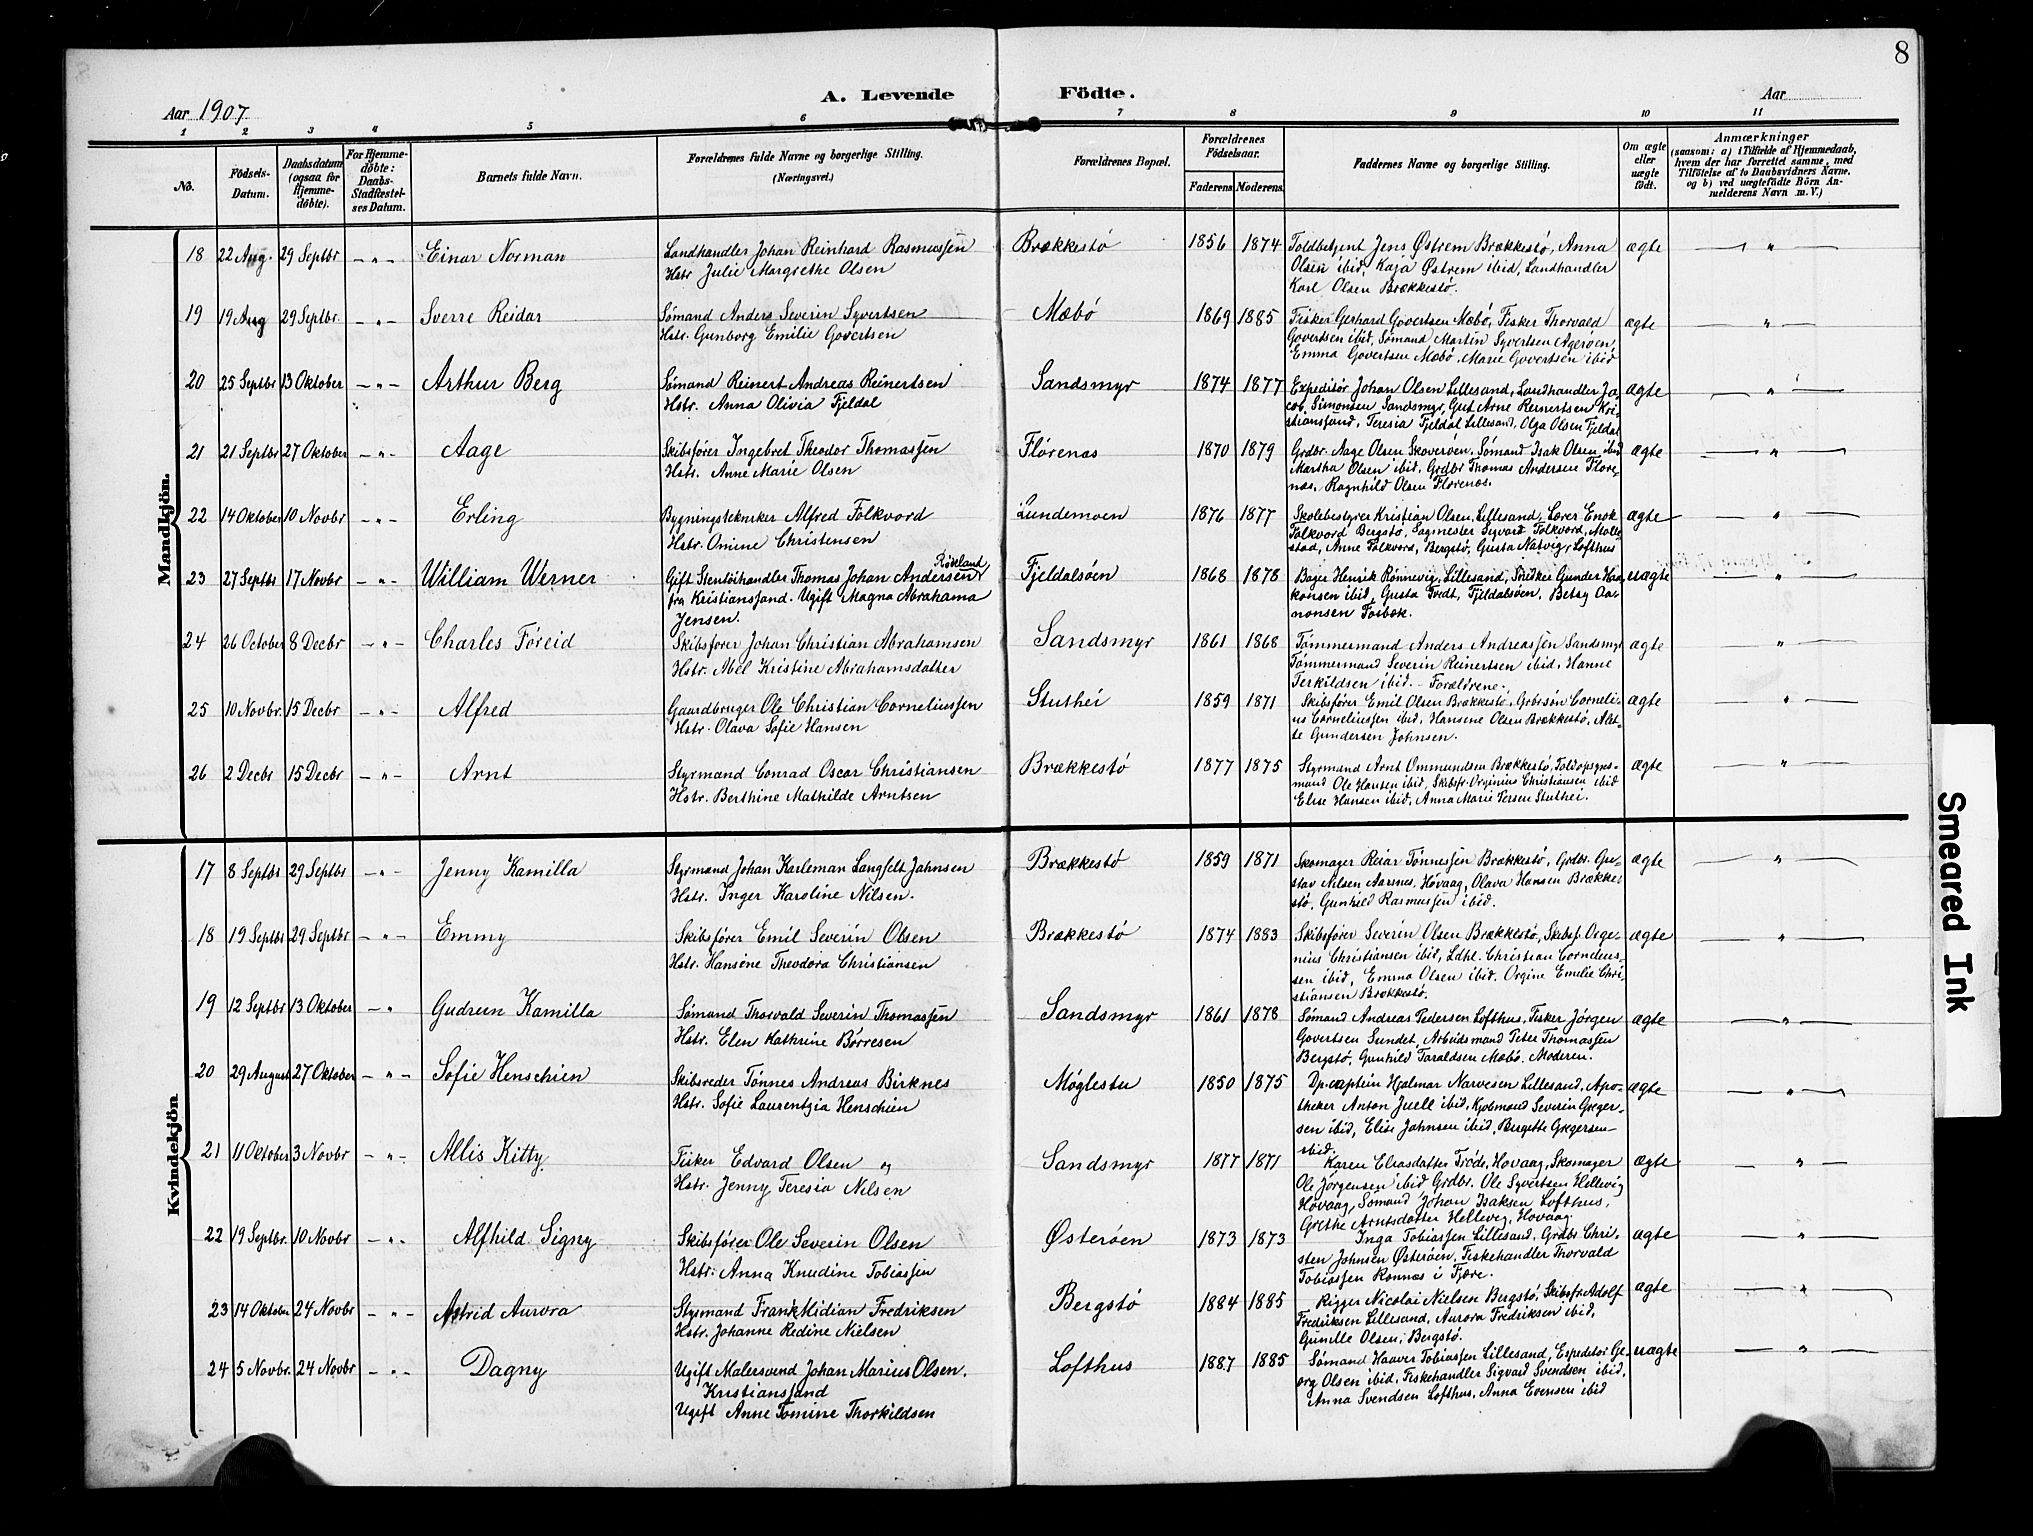 8
Aar 1907.
A. Levende Födte.
Aar
1 2 3 4 5 6 7 8 9 10 11
No.
Födsels-Datum.
Daabsdatum (ogsaa for Hjemmedöbte).
For Hjemmedöbte: Daabs-Stadfæstelses Datum.
Barnets fulde Navn.
Forældrenes fulde Navne og borgerlige Stilling. (Næringsvei.)
Forældrenes Bopæl.
Forældrenes Födselsaar.
Faderens. Moderens.
Faddernes Navne og borgerlige Stilling.
Om ægte eller uægte födt.
Anmærkninger
(saasom: a) i Tilfælde af Hjemmedaab, hvem der har forrettet samme, med Tilföielse af to Daabsvidners Navne, og b) ved uægtefödte Börn Anmelderens Navn m. V.)
Mandkjön.
18 22 Aug. 29 Septbr -"- Einar Norman
Landhandler Johan Reinhard Rasmussen
Hstr Julie Margrethe Olsen
Brækkestø 1856 1874
Toldbetjent Jens Østrem Brækkestø, Anna
Olsen ibid, Kaja Østrem ibid, Landhandler
Karl Olsen Brækkestø.
ægte "
19 19 Aug 29 Septbr. -"- Sverre Reidar
Sømand Anders Severin Syvertsen
Hstr. Gunborg Emilie Govertsen
Mæbø 1869 1885
Fisker Gerhard Govertsen Mæbø, Fisker Thorvald
Govertsen ibid, Sømand Martin Syvertsen Agerøen,
Emma Govertsen Mæbø, Marie Govertsen ibid
ægte "
20 25 Septbr 13 Oktober -"- Arthur Berg
Sømand Reinert Andreas Reinertsen
Hstr. Anna Olivia Fjeldal
Sandsmyr 1874 1877
Expeditør Johan Olsen Lillesand, Landhandler Ja-
cob Simonsen Sandsmyr, Gut Arne Reinertsen Kri-
stianssand, Teresia Fjeldal Lillesand, Olga Olsen Fjeldal
ægte "
21 21 Septbr 27 Oktober -"- Aage
Skibsfører Ingebret Theodor Thomassen
Hstr. Anne Marie Olsen
Florenæs 1870 1879
Grdbr. Aage Olsen Skoverøen, Sømand Isak Olsen ibid
Martha Olsen ibid, Grdbr Thomas Andersen Flore-
næs, Ragnhild Olsen Florenæs.
ægte "
22 14 Oktober 10 Novbr -"- Erling
Bygningstekniker Alfred Folkvord
Hstr. Omine Christensen
Lundemoen 1876 1877
Skolebestyrer Kristian Olsen, Lillesand, Lærer Enok
Folkvord Bergstø, Sagmester Sigvart Folkvord, Molle-
stad, Anne Folkvord, Bergstø, Gusta Natvig, Lofthus
ægte "
23 27 Septbr 17 Novbr -"- William Werner
Gift Stentøihandler Thomas Johan Andersen Røseland
fra Kristianssand. Ugift Magna Abrahama
Jensen.
Fjeldalsøen 1868 1878
Bager Henrik Rønnevig, Lillesand, Snedker Gunder Haa-
konsen ibid, Gusta Tvedt, Fjeldalsøen, Betsy Aa-
nonsen Fosbæk.
uægte "
24 26 October 8 Decbr -"- Charles Føreid
Skibsfører Johan Christian Abrahamsen
Hstr. Abel Kristine Abrahamsdatter
Sandsmyr 1861 1868
Tømmermand Anders Andreassen Sandsmyr
Tømmermand Severin Reinertsen ibid, Hanne
Terkildsen ibid. - Forældrene.
ægte "
25 10 Novbr. 15 Decbr -"- Alfred
Gaardbruger Ole Christian Corneliussen
Hstr. Olava Sofie Hansen
Stuthei 1859 1871
Skibsfører Emil Olsen Brækkestø, Grbrsøn Corneli-
us Corneliussen ibid, Hansene Olsen Brækkestø,
Gundersen Johnsen.
ægte "
26 2 Decbr 15 Decbr -"- Arnt
Styrmand Conrad Oscar Christiansen
Hstr. Berthine Mathilde Arntsen
Brækkestø 1877 1875
Styrmand Arnt Ommundsen Brækkestø, Toldopsyns-
mand Ole Hansen ibid, Skibsfr. Orginius Christiansen ibid
Elise Hansen ibid, Anna Marie Tersen Stuthei.
ægte "
Kvindekjön
17 8 Septbr 29 Septbr -"- Jenny Kamilla
Styrmand Johan Karleman Langfelt Jahnsen
Hstr. Inger Karoline Nilsen.
Brækkestø 1859 1871
Skomager Reiar Tønnessen Brækkestø, Grdbr. Gu-
stav Nilsen Aarsnes, Høvaag, Olava Hansen Brække-
stø, Gunhild Rasmussen ibid.
ægte "
18 19 Septbr 29 Septbr -"- Emmy
Skibsfører Emil Severin Olsen
Hstr. Hansine Theodora Christiansen
Brækkestø 1874 1883
Skibsfører Severin Olsen Brækkestø, Skibsf. Orge-
nius Christiansen ibid, Ldhl. Christian Cornelius-
sen ibid, Emma Olsen ibid. Orgine Emelie Chri-
stiansen Brækkestø.
ægte "
19 12 Septbr 13 Oktober -" Gudrun Kamilla
Sømand Thorvald Severin Thomassen
Hstr. Elen Kathrine Børresen
Sandsmyr 1861 1878
Sømand Andreas Pedersen Lofthus, Fisker Jørgen
Govertsen Sundet, Arbeidsmand Peter Thomassen
Bergstø, Gunhild Taraldsen Mæbø. Moderen.
ægte "
20 29 August 27 Oktober -"- Sofie Henschien
Skibsreder Tønnes Andreas Birknes
Hstr. Sofie Laurentzia Henschien
Møglestu 1850 1875
Dp.captein Hjalmar Narvesen Lillesand, Apo-
theker Anton Juell ibid, Kjøbmand Severin Greger-
sen ibid, Elise Johnsen ibid, Bergette Gregersen
ibid.
ægte "
21 11 Oktober 3 Novbr -"- Allis Kitty
Fisker Edvard Olsen og
Hstr. Jenny Teresia Nilsen
Sandsmyr 1877 1871
Karen Eliasdatter Trøde, Høvaag, Skomager
Ole Jørgensen ibid Grdbr. Ole Syvertsen Hellevig
Høvaag, Sømand Johan Isaksen Lofthus,
Grethe Arntsdatter Hellevig, Høvaag.
ægte "
22 19 Septbr. 10 Novbr -"- Alfhild Signy
Skibsfører Ole Severin Olsen
Hstr. Anna Knudine Tobiassen
Østerøen 1873 1873
Inga Tobiassen Lillesand, Grdbr Chri-
sten Johnsen Østerøen, Fiskehandler Thorvald
Tobiassen Rønnæs i Fjære.
ægte "
23 14 Oktober 24 Novbr -"- Astrid Aurora
Styrmand Frank Midian Fredriksen
Hstr. Johanne Redine Nielsen
Bergstø 1884 1885
Rigger Nicolai Nielsen Bergstø, Skibsfr. Adolf
Fredriksen Lillesand, Aurora Fredriksen ibid,
Gunelle Olsen, Bergstø.
ægte "
24 5 Novbr. 24 Novbr -"- Dagny
Ugift Malersvend Johan Marius Olsen,
Kristianssand
Ugift Anne Tomine Thorkildsen
Lofthus 1887 1885
Sømand Haaver Tobiassen Lillesand, Expeditør Ge-
org Olsen ibid, Fiskehandler Sigvard Svendsen ibid,
Anna Svendsen Lofthus, Anna Evensen ibid
uægte "
Smeared Ink